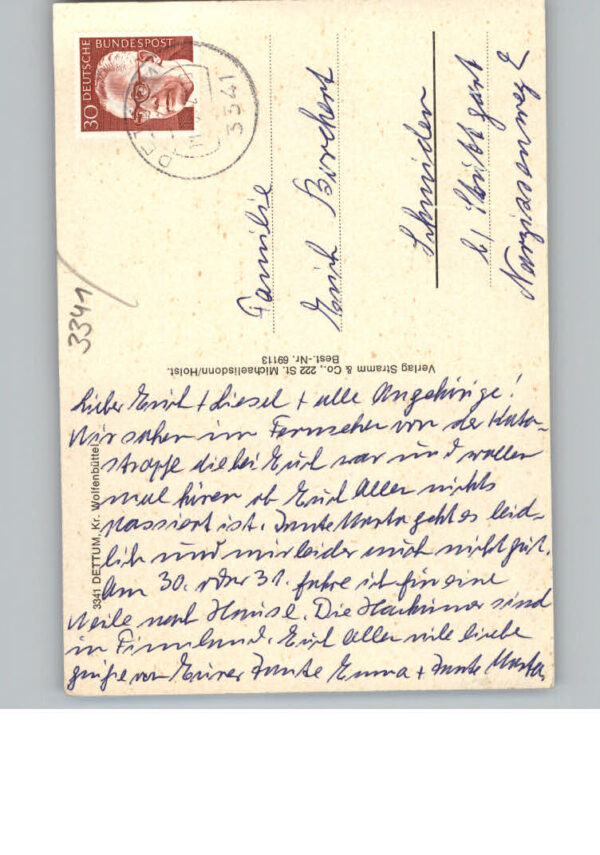 30 DEUTSCHE BUNDESPOST
3341
3341
Familie
Erich Borchert
Schmiden
b/ Stuttgart
Narzissenweg 2
Verlag Stramm & Co., 222 St. Michaelisdonn/Holst.
Best.-Nr. 69113
3341 DETTUM, Kr. Wolfenbüttel
Lieber Erich + Liesel + alle Angehörige!
Wir sahen im Fernseher von der Kata-
strophe die bei Euch war und wollen
mal hören ob Euch Allen nichts
passiert ist. Tante Marta geht es leid-
lich und mir leider auch nicht gut.
Am 30. oder 31. fahre ich für eine
Weile nach Hause. Die sind
in Finnland. Euch Allen viele liebe
Grüße von Eurer Tante Emma + Tante Marta